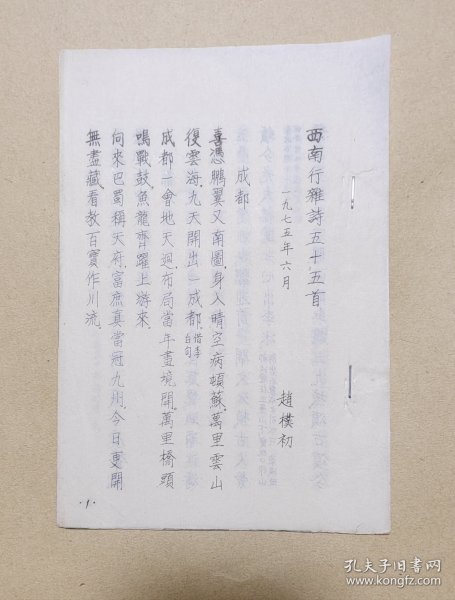 西南行雜詩五十五首
一九七五年六月
趙樸初
成都
喜憑鵬翼又南圖，身入晴空病頓蘇。萬里雲山
復雲海，九天開出一成都。借李白句
成都一會地天迴，布局當年畫境開。萬里橋頭
鳴戰鼓，魚龍齊躍上游來。
向來巴蜀稱天府，富庶真當冠九州。今日更開
無盡藏，看教百寶作川流。
·1·
孔夫子旧书网
www.kongfz.com